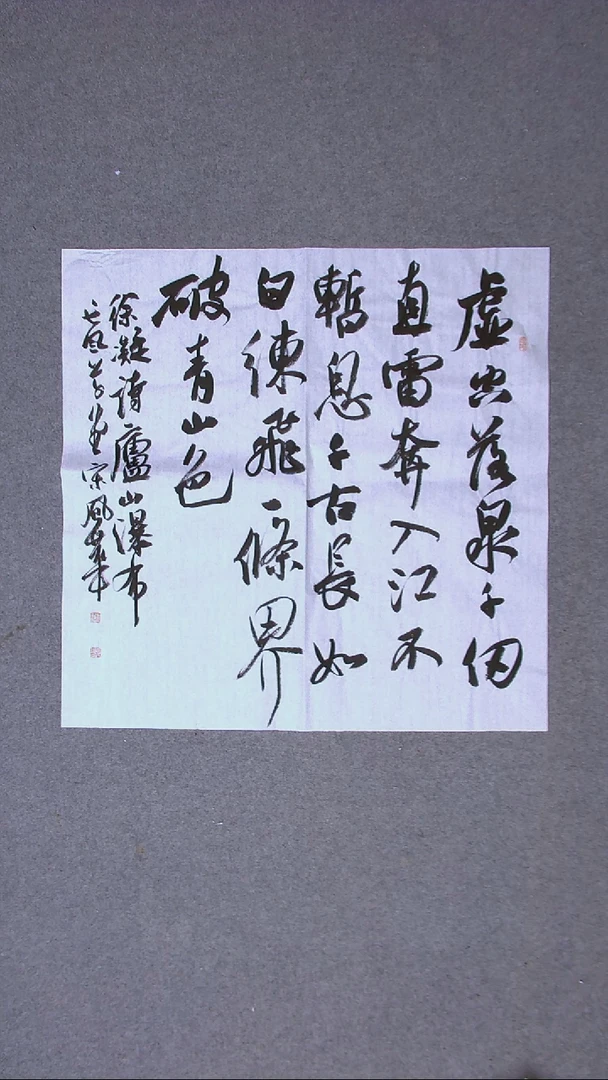 虛空落泉千仞
直雷奔入江不
暫息千古長如
白練飛一條界
破青山色
徐凝詩廬山瀑布
宋風